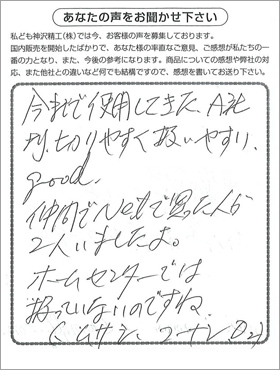 あなたの声をお聞かせ下さい
私ども神沢精工(株)では今、お客様の声を募集しております。
国内販売を開始したばかりで、あなた様の率直なご意見、ご感想が私たちの一
番の力となり、また、今後の参考になります。商品についての感想や弊社の対
応、また他社との違いなど何でも結構ですので、感想を書いてお送り下さい。
今まで使用してきた、A社
より、切りやすく扱いやすい。
good.
仲間でNetで買った人が
2人いましたよ。
ホームセンターでは
扱っていないのですね
(ムサシ、コーナン D2)